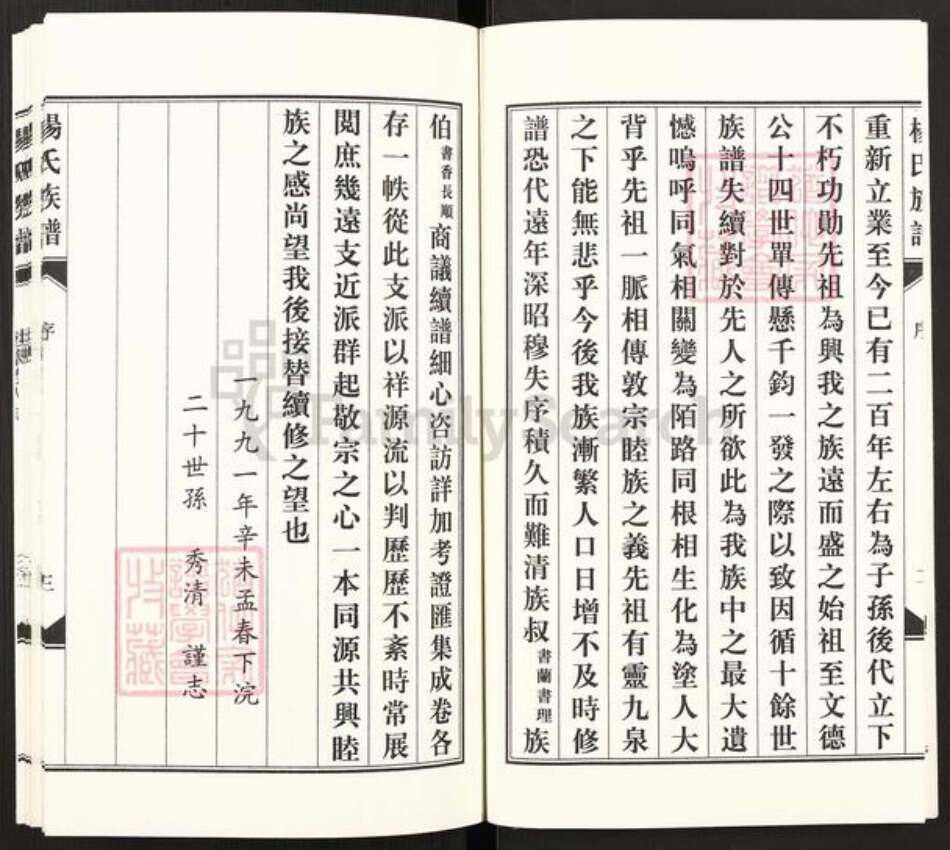 楊氏族譜
序
二
重新立業至今已有二百年左右為子孫後代立下
不朽功勛先祖為興我之族遠而盛之始祖至文德
公十四世單傳懸千鈞一發之際以致因循十餘世
族譜失續對於先人之所欲此為我族中之最大遺
憾嗚呼同氣相關變為陌路同根相生化為塗人大
背乎先祖一脈相傳敦宗睦族之義先祖有靈九泉
之下能無悲乎今後我族漸繁人口日增不及時修
譜恐代遠年深昭穆失序積久而難清族叔書蘭書理族
伯書香長順商議續譜細心咨訪詳加考證匯集成卷各
存一帙從此支派以祥源流以判歷歷不紊時常展
閱庶幾遠支近派群起敬宗之心一本同源共興睦
族之感尚望我後接替續修之望也
一九九一年辛未孟春下浣
二十世孫 秀清 謹志
楊氏族譜
序
三
FamilySearch